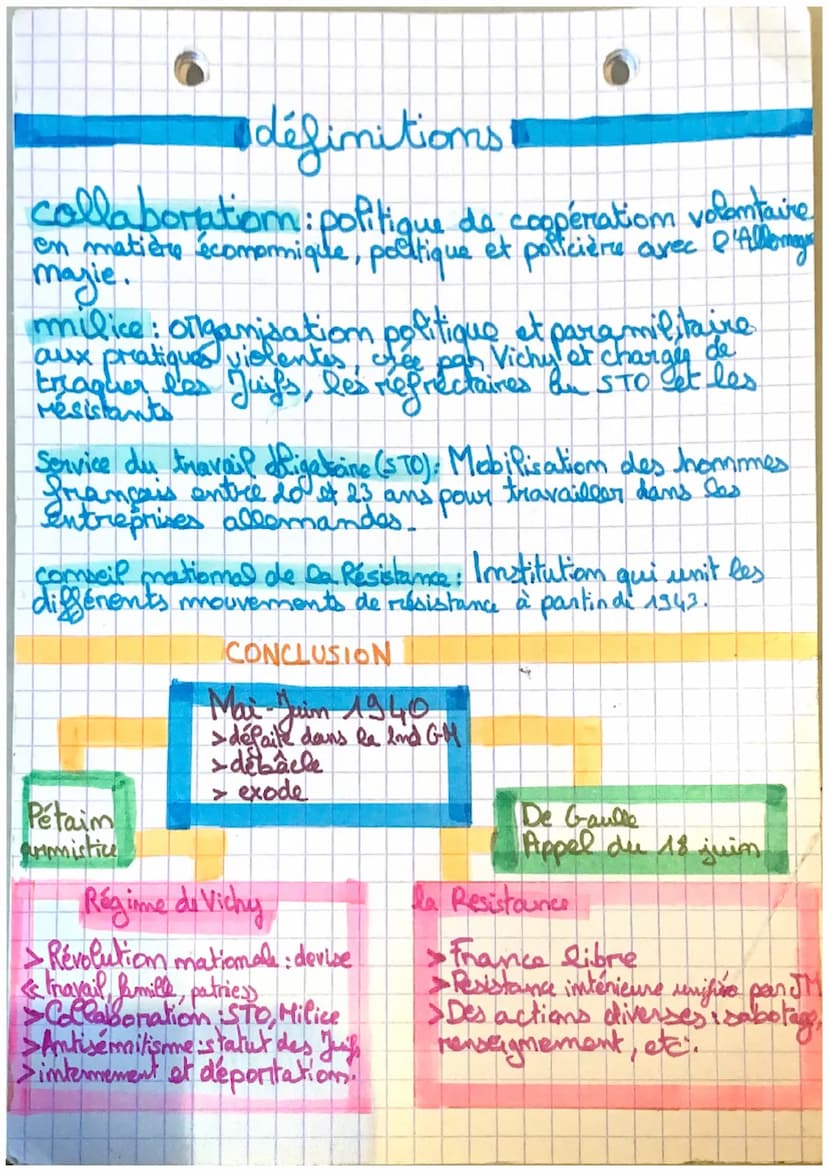 définitions
collaboration : politique de coopération volontaire
en matière économique, politique et policière avec l'Allemagne
nazie.
milice : organisation politique et paramilitaire
aux pratiques violentes, créée par Vichy et chargée de
traquer les Juifs, les réfractaires au STO et les
résistants
Service du travail obligatoire (STO) : Mobilisation des hommes
français entre 20 et 23 ans pour travailler dans les
entreprises allemandes.
conseil national de la Résistance : Institution qui unit les
différents mouvements de résistance à partir de 1943.
CONCLUSION
Mai-Juin 1940
> défaite dans la 2nd GM
> débâcle
> exode
Pétain
armistice
De Gaulle
Appel du 18 juin
Régime de Vichy
> Révolution nationale : devise
« travail, famille, patrie »
> Collaboration : STO, Milice
> Antisémitisme : statut des Juifs,
> internement et déportation.
la Resistance
> France libre
> Resistance intérieure unifiée par JM
> Des actions diverses : sabotage,
renseignement, etc.